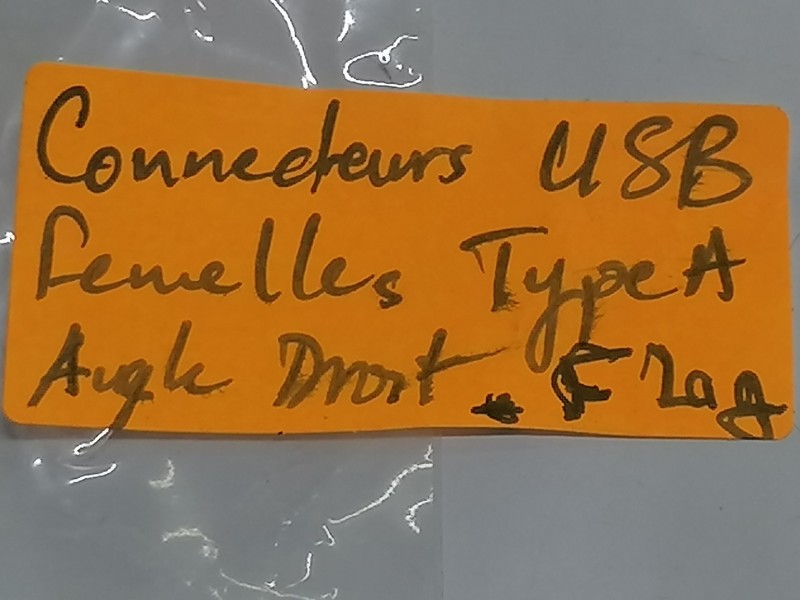 Connecteurs USB
femelles Type A
Angle Droit